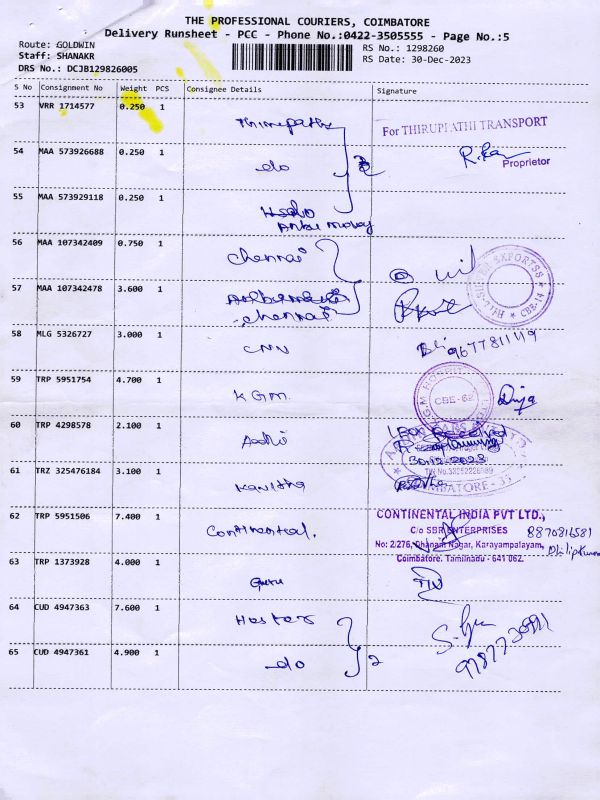 THE PROFESSIONAL COURIERS, COIMBATORE
Delivery Runsheet - PCC - Phone No.:0422-3505555 - Page No.:5
Route: GOLDWIN
Staff: SHANAKR
DRS No.: DCJB129826005
RS No.: 1298260
RS Date: 30-Dec-2023
S No Consignment No Weight PCS Consignee Details Signature
53 VRR 1714577 0.250 1
For THIRUPLATHI TRANSPORT
Proprietor
54 MAA 573926688 0.250 1 do
55 MAA 573929118 0.250 1
56 MAA 107342409 0.750 1 Chennai
57 MAA 107342478 3.600 1
Chennai
58 MLG 5326727 3.000 1 CNN 9677811119
59 TRP 5951754 4.700 1 KGM
CBE-62
60 TRP 4298578 2.100 1 Aadhi
30.12.2023
61 TRZ 325476184 3.100 1 Kavitha
62 TRP 5951506 7.400 1 Continental.
CONTINENTAL INDIA PVT LTD.,
C/o SBR ENTERPRISES 8870816581
No: 2/276, Dhanam Nagar, Karayampalayam,
Coimbatore. Tamilnadu - 641 062.
63 TRP 1373928 4.000 1 Guru
64 CUD 4947363 7.600 1
65 CUD 4947361 4.900 1 do 2